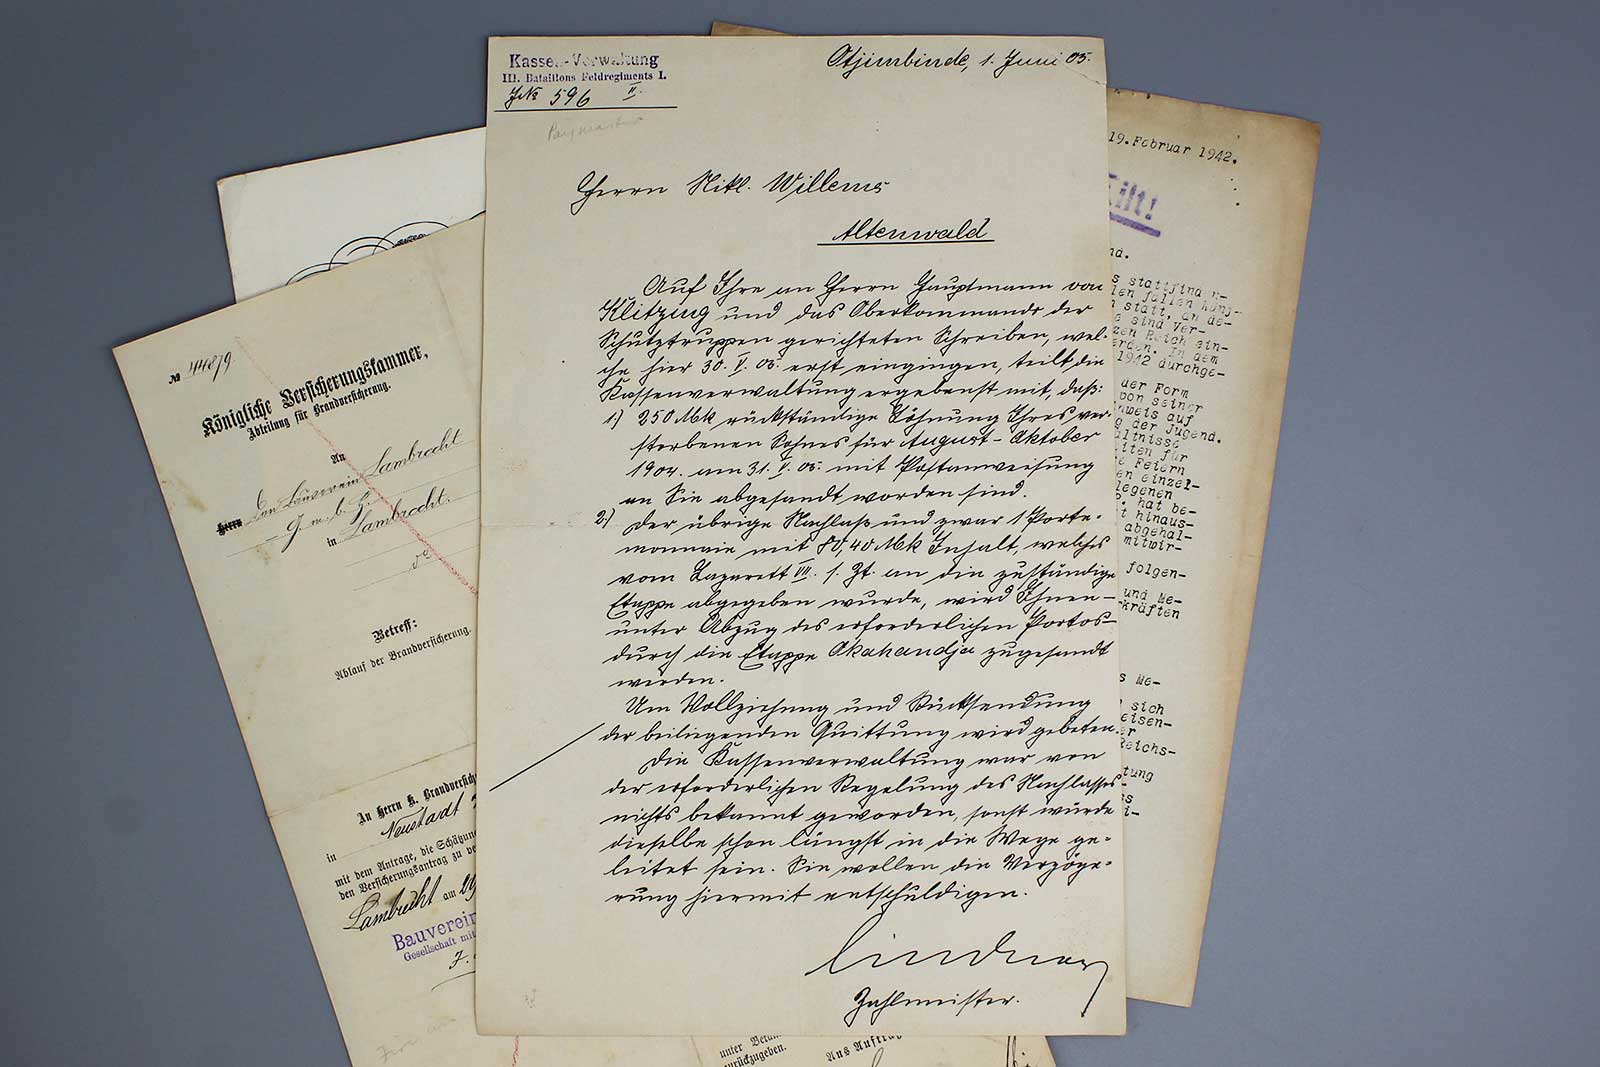 Kassen-Verwaltung
III. Bataillons Feldregiments I.
J.№ 596 II.
Otjimbinde, 1. Juni 05.
Paymaster
Herrn Nikl. Willems
Altenwald
Auf Ihre an Herrn Hauptmann von
Klitzing und das Oberkommando der
Schutztruppen gerichteten Schreiben, wel-
che hier 30. V. 05. erst eingingen, teilt die
Kassenverwaltung ergebenst mit, daß:
1) 250 Mk rückständige Löhnung Ihres ver-
storbenen Sohnes für August-Oktober
1904. am 31. V. 05. mit Postanweisung
an Sie abgesandt worden sind.
2) der übrige Nachlaß und zwar 1 Porte-
monnaie mit 80,40 Mk Inhalt, welches
vom Lazarett VII. s. Zt. an die zuständige
Etappe abgegeben wurde, wird Ihnen-
unter Abzug des erforderlichen Portos-
durch die Etappe Okahandja zugesandt
werden.
Um Vollziehung und Rücksendung
der beiliegenden Quittung wird gebeten.
Die Kassenverwaltung war von
der erforderlichen Regelung des Nachlasses-
nichts bekannt geworden, sonst würde
dieselbe schon längst in die Wege ge-
leitet sein. Sie wollen die Verzöge-
rung hiermit entschuldigen.
Lindner
Zahlmeister.
№ 44879
Königliche Versicherungskammer,
Abteilung für Brandversicherung.
An
Herrn den Bauverein Lambrecht
G.m.b.H.
in Lambrecht.
Betreff:
Ablauf der Brandversicherung.
An Herrn K. Brandversiche
in Neustadt
mit dem Antrage, die Schätzung
den Versicherungsantrag zu
Lambrecht am 29
Bauverein
Gesellschaft mit
unter
zurückzugeben.
Aus Auftrag
19. Februar 1942.
Eilt!
nd.
s stattfind n-
len fallen
n statt, an de-
e sind Ver-
zen Reich ein-
erden. In dem
1942 durchge-
der Form
von seiner
nweis auf
g der Jugend.
ältnisse
lten für
e Feiern
en einzel-
legenen
P. hat be-
t hinaus-
abgehal-
mitwir-
folgen-
und Me-
kräften
s Me-
sich
eisen-
er
Reichs-
tung
s
i-